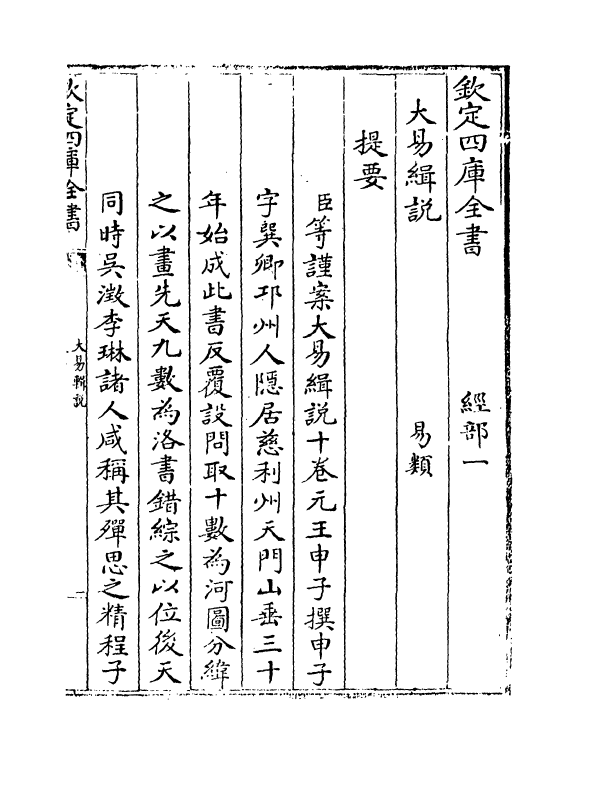 欽定四庫全書　經部一
大易緝説　易類
提要
臣等謹案大易緝説十卷元王申子撰申子
字巽卿邛州人隱居慈利州天門山垂三十
年始成此書反覆設問取十數為河圖分緯
之以畫先天九數為洛書錯綜之以位後天
同時吳澂李琳諸人咸稱其殫思之精程子
欽定四庫全書
大易輯説
一